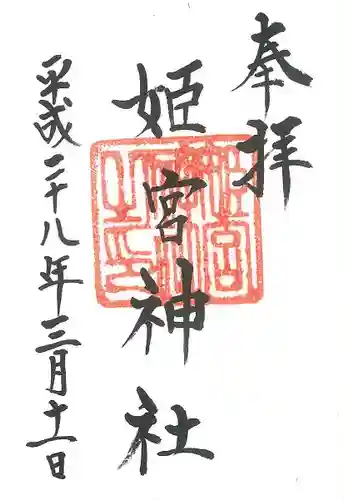 奉拝
姫宮神社
平成二十八年三月十一日